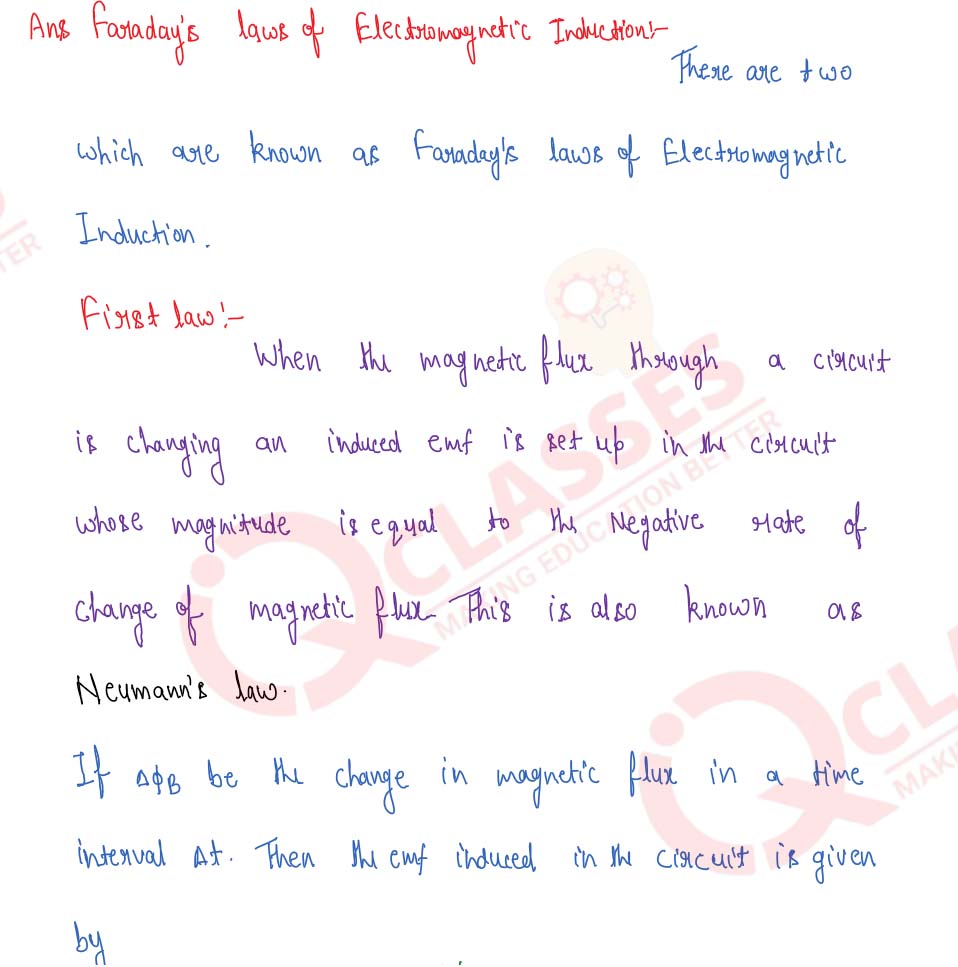 Ans Faraday's laws of Electromagnetic Induction:-
There are two
which are known as Faraday's laws of Electromagnetic
Induction.
First law:-
When the magnetic flux through a circuit
is changing an induced emf is set up in the circuit
whose magnitude is equal to the Negative rate of
change of magnetic flux This is also known as
Neumann's law.
If ΔΦB be the change in magnetic flux in a time
interval Δt. Then the emf induced in the circuit is given
by
TER
IQ CLASSES
MAKING EDUCATION BETTER
IQ CLA
MAKI